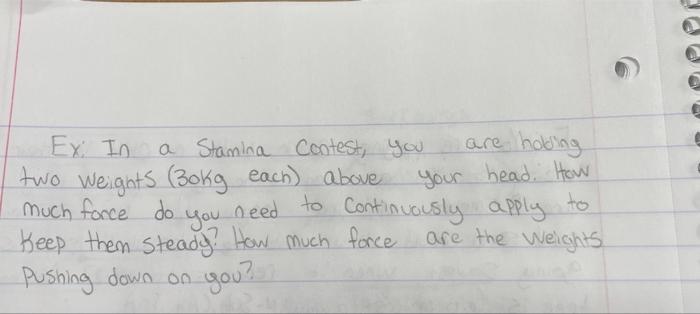 Ex. In a Stamina Contest, you are holding
two weights (30kg each) above your head. How
much force do you need to continuously apply to
keep them steady? How much force are the weights
pushing down on you?